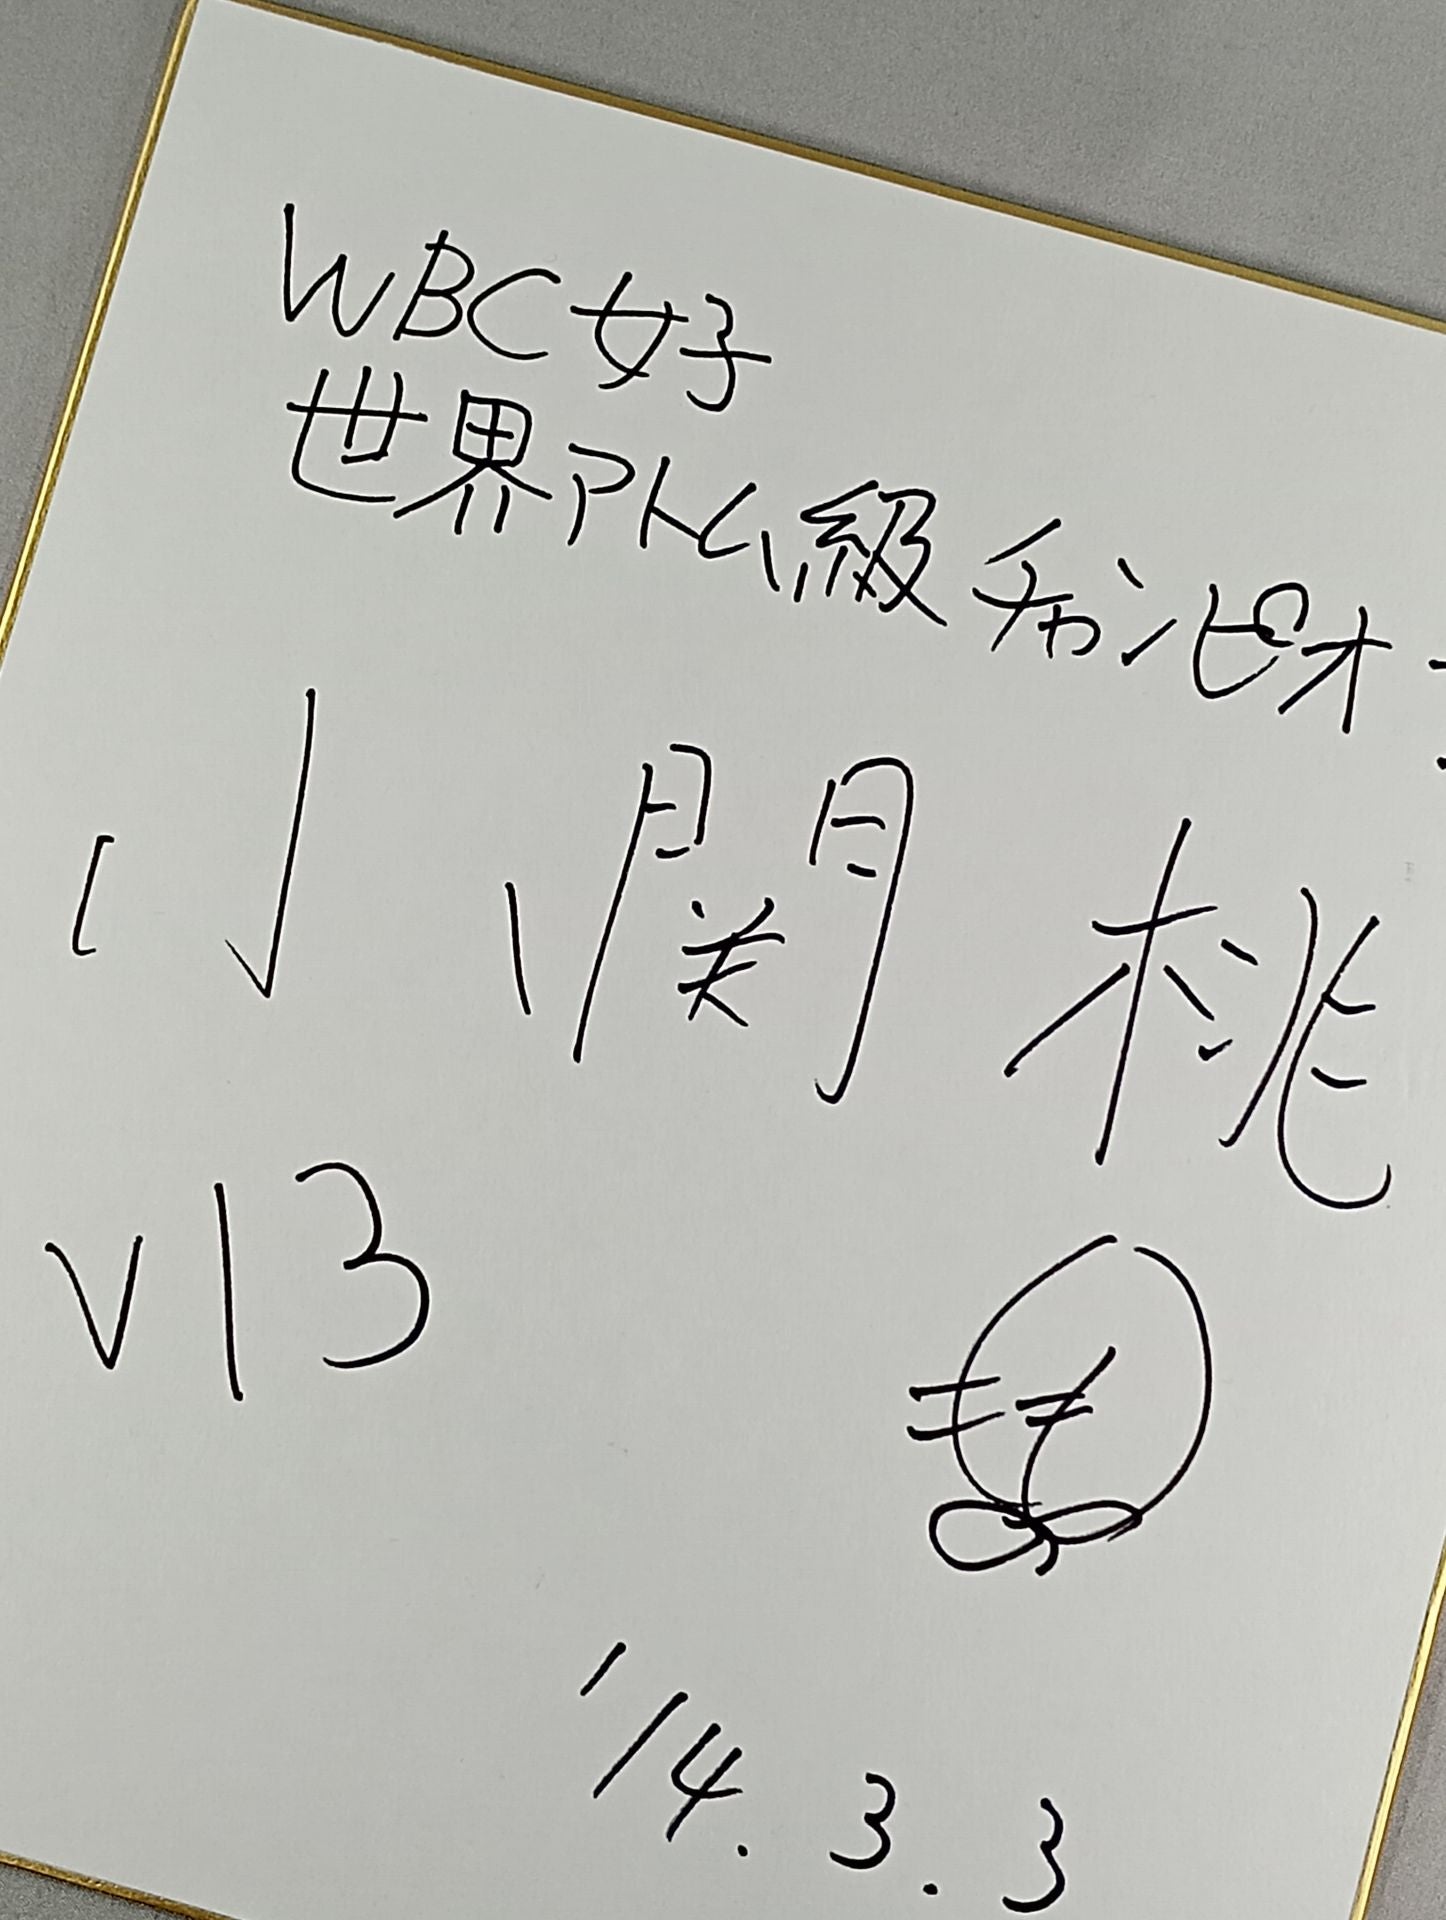 WBC女子
世界アトム級チャンピオン
小関桃
V13
モモ
'14.3.3